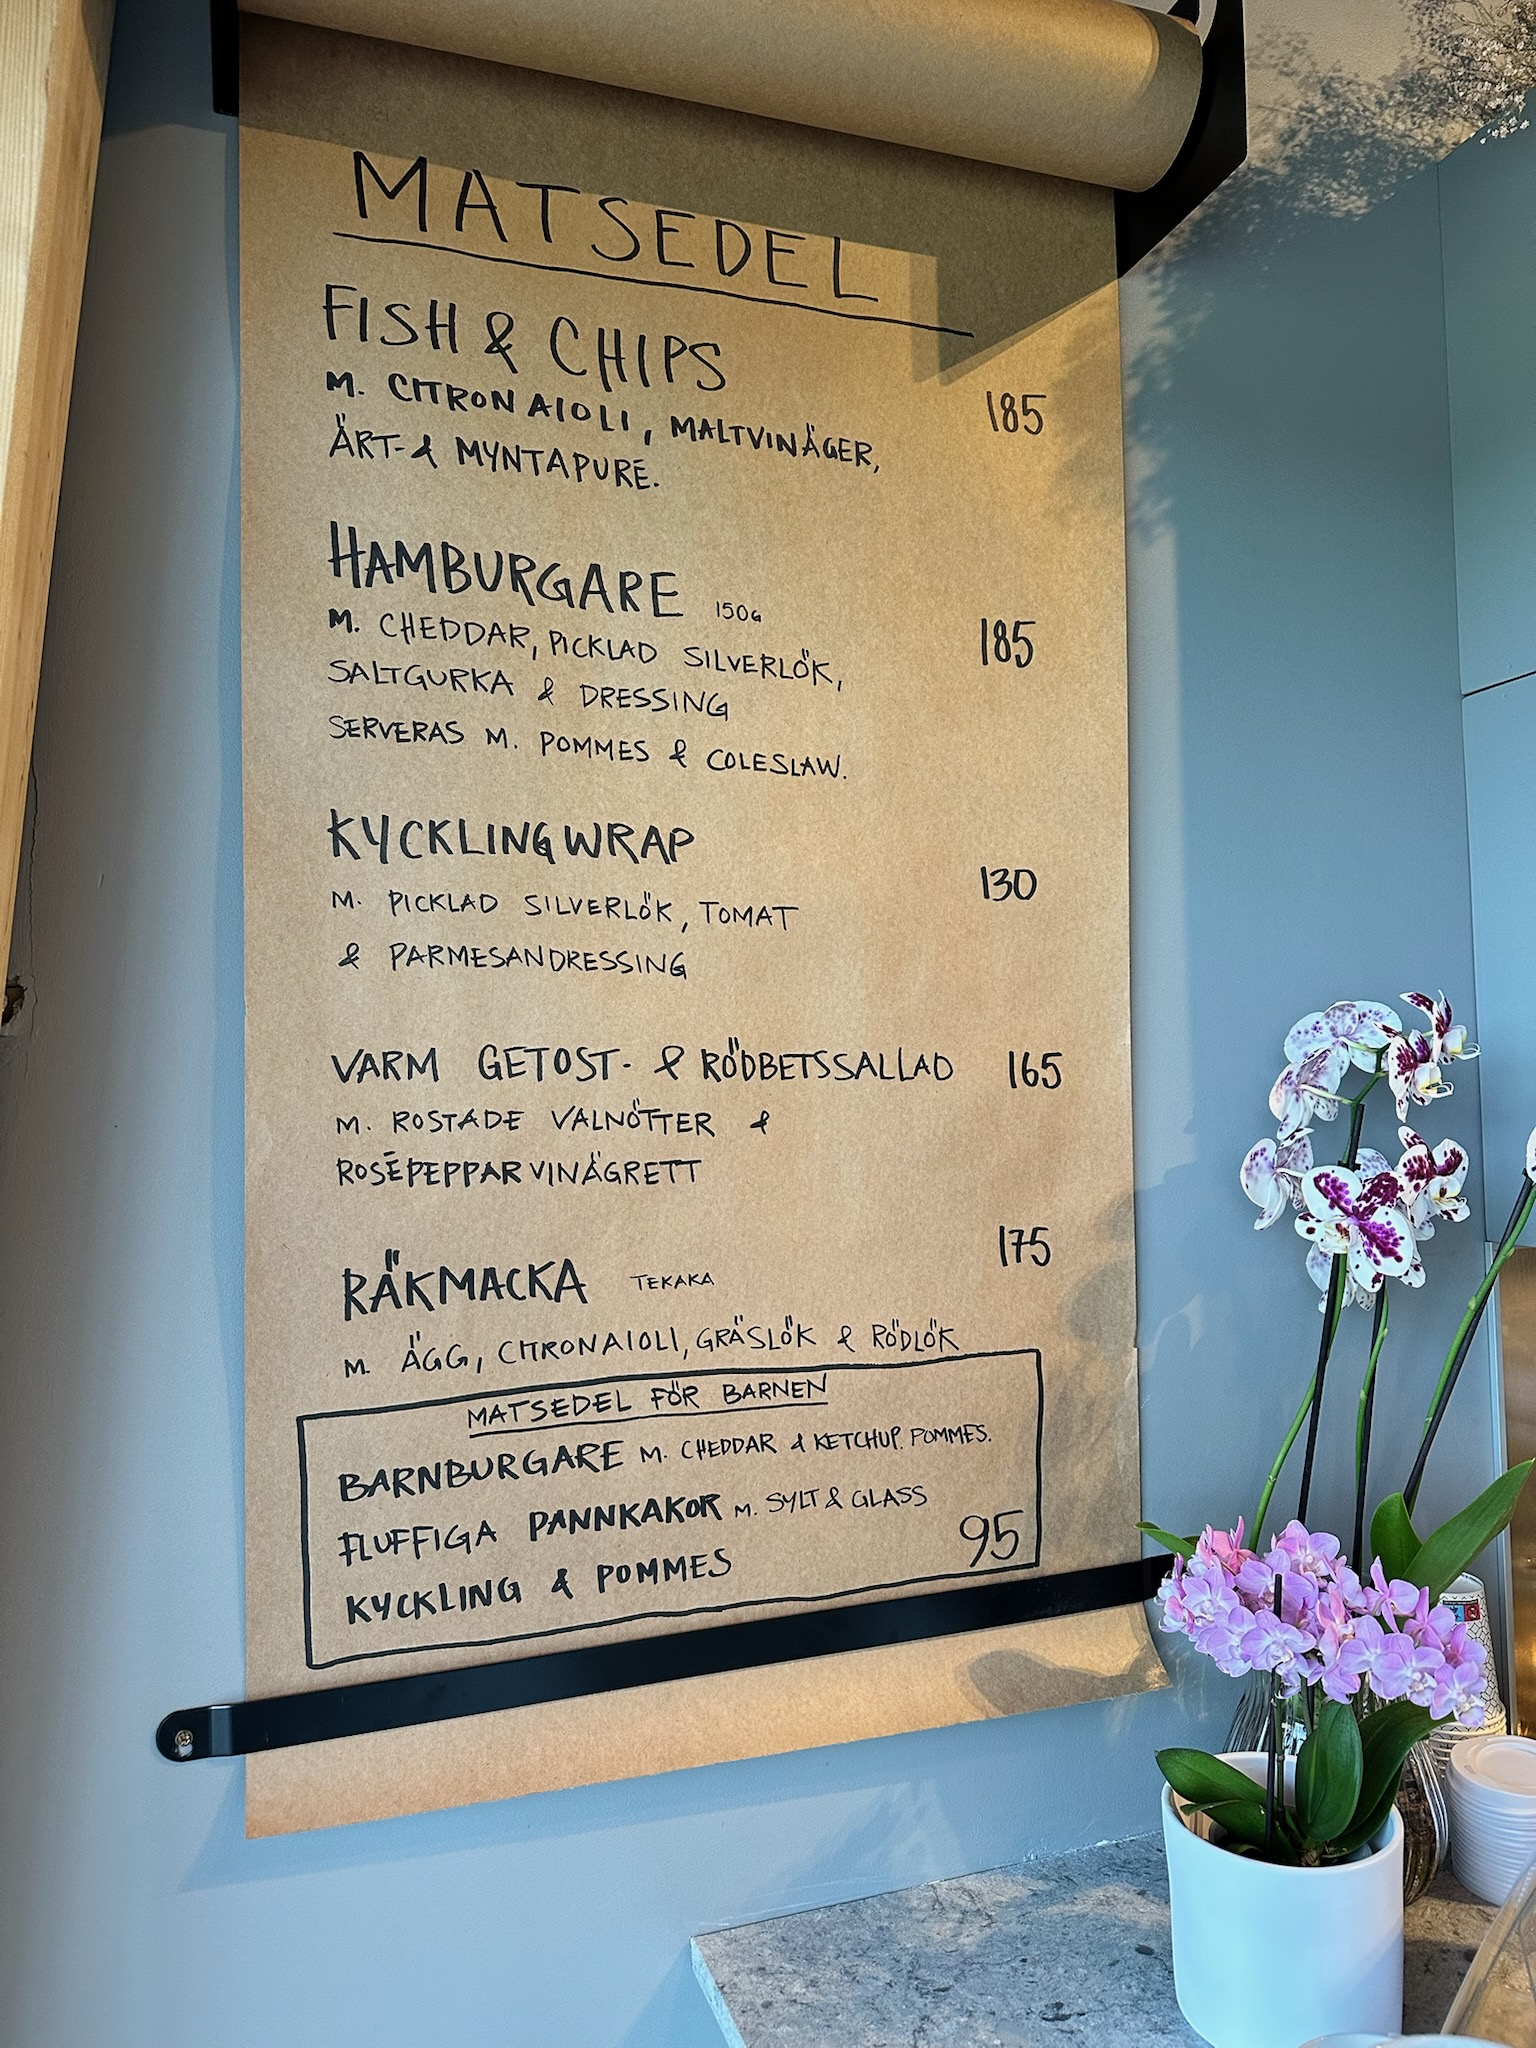 MATSEDEL
FISH & CHIPS
M. CITRONAIOLI, MALTVINÄGER, 185
ÄRT- & MYNTAPURÉ.
HAMBURGARE 150G
M. CHEDDAR, PICKLAD SILVERLÖK, 185
SALTGURKA & DRESSING
SERVERAS M. POMMES & COLESLAW.
KYCKLINGWRAP
M. PICKLAD SILVERLÖK, TOMAT 130
& PARMESANDRESSING
VARM GETOST- & RÖDBETSSALLAD 165
M. ROSTADE VALNÖTTER &
ROSÉPEPPARVINÄGRETT
RÄKMACKA TEKAKA 175
M. ÄGG, CITRONAIOLI, GRÄSLÖK & RÖDLÖK
MATSEDEL FÖR BARNEN
BARNBURGARE M. CHEDDAR & KETCHUP. POMMES.
FLUFFIGA PANNKAKOR M. SYLT & GLASS
KYCKLING & POMMES 95